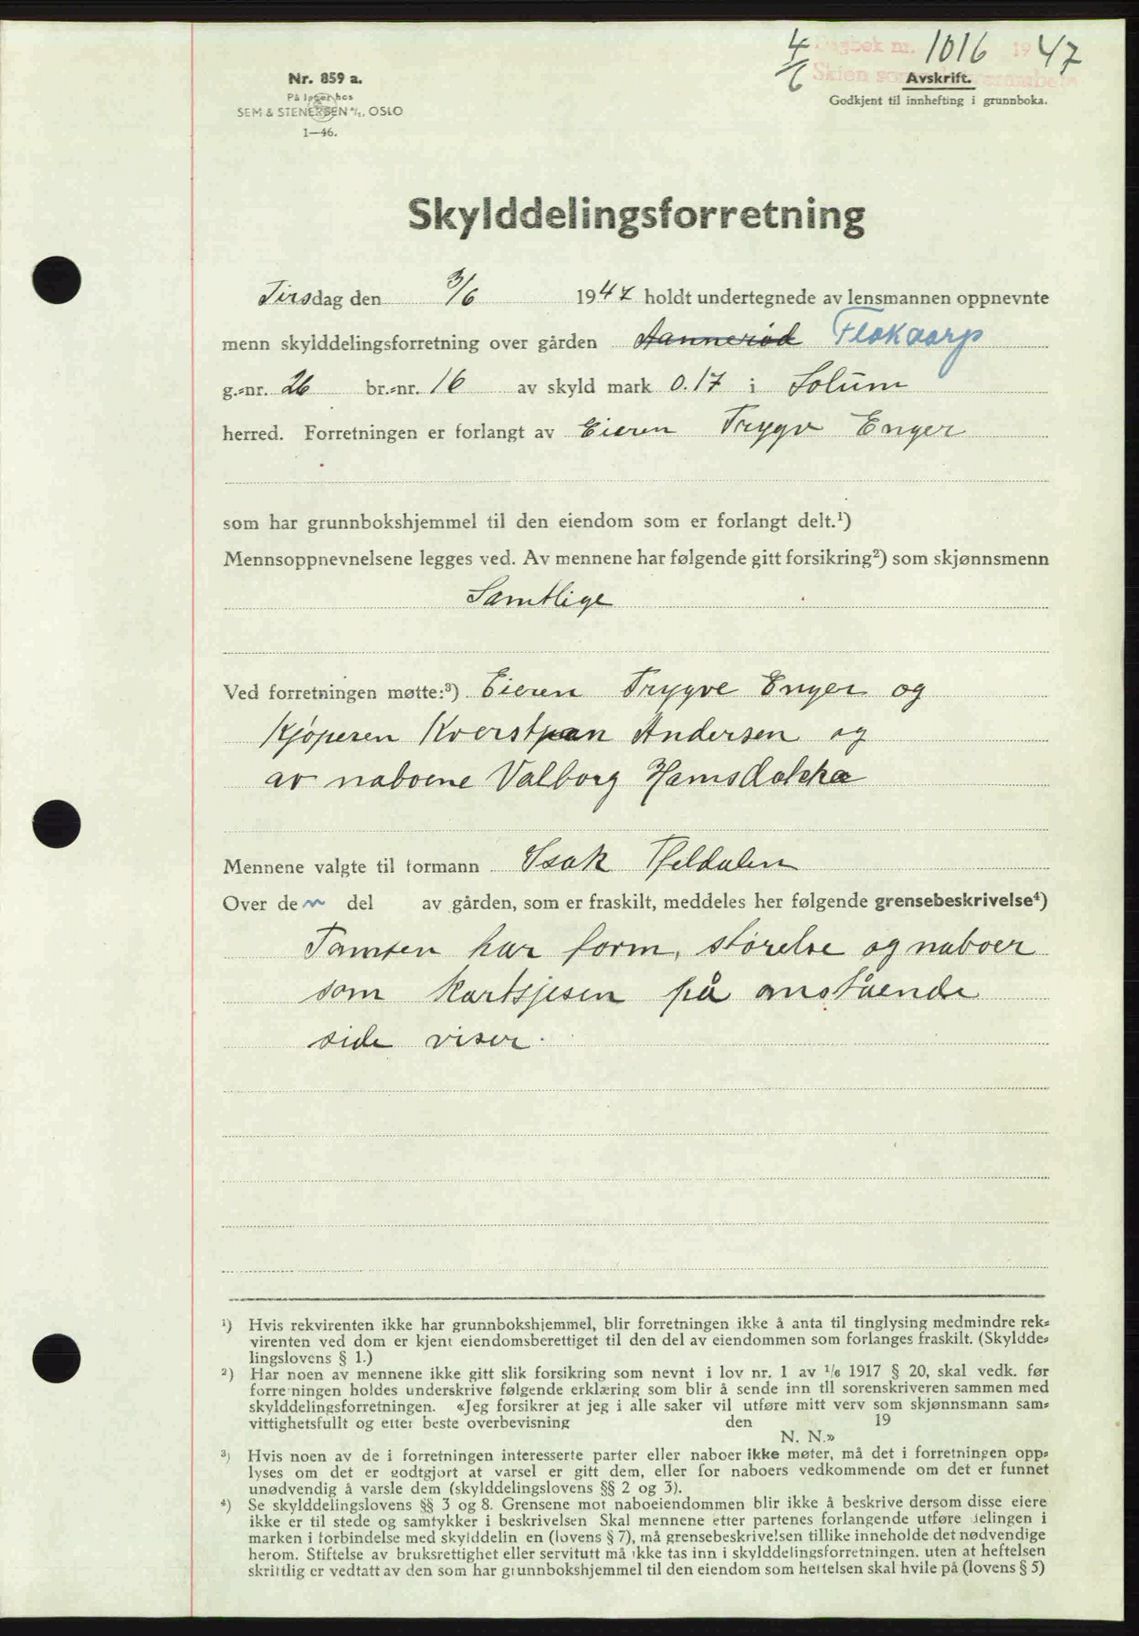 4/6 Dagbok nr. 1016 1947
Skien sorenskriverembete
Nr. 859 a.
Avskrift.
På lager hos
Godkjent til innhefting i grunnboka.
SEM & STENERSEN A/S, OSLO
1—46.
Skylddelingsforretning
Tirsdag den 3/6 1947 holdt undertegnede av lensmannen oppnevnte
menn skylddelingsforretning over gården Aannerød Flakvarp
g.-nr. 26 br.-nr. 16 av skyld mark 0.17 i Solum
herred. Forretningen er forlangt av Eieren Trygv Enger
som har grunnbokshjemmel til den eiendom som er forlangt delt.¹)
Mennsoppnevnelsene legges ved. Av mennene har følgende gitt forsikring²) som skjønnsmenn
Samtlige
Ved forretningen møtte:³) Eieren Trygve Enger og
Kjøperen Andersen og
av naboene Valborg Hamsdokka
Mennene valgte til formann Isak Fjeldalen
Over de n del av gården, som er fraskilt, meddeles her følgende grensebeskrivelse⁴)
Tomten har form, størelse og naboer
som kartsjesen på omstående
side viser.
¹) Hvis rekvirenten ikke har grunnbokshjemmel, blir forretningen ikke å anta til tinglysing medmindre rek-
virenten ved dom er kjent eiendomsberettiget til den del av eiendommen som forlanges fraskilt. (Skyldde-
lingslovens § 1.)
²) Har noen av mennene ikke gitt slik forsikring som nevnt i lov nr. 1 av 1/6 1917 § 20, skal vedk. før
forretningen holdes underskrive følgende erklæring som blir å sende inn til sorenskriveren sammen med
skylddelingsforretningen. «Jeg forsikrer at jeg i alle saker vil utføre mitt verv som skjønnsmann sam-
vittighetsfullt og etter beste overbevisning den 19
N. N.»
³) Hvis noen av de i forretningen interesserte parter eller naboer ikke møter, må det i forretningen opp-
lyses om det er godtgjort at varsel er gitt dem, eller for naboers vedkommende om det er funnet
unødvendig å varsle dem (skylddelingslovens §§ 2 og 3).
⁴) Se skylddelingslovens §§ 3 og 8. Grensene mot naboeiendommen blir ikke å beskrive dersom disse eiere
ikke er til stede og samtykker i beskrivelsen Skal mennene etter partenes forlangende utføre delingen i
marken i forbindelse med skylddelin en (lovens § 7), må grensebeskrivelsen tillike inneholde det nødvendige
herom. Stiftelse av bruksrettighet eller servitutt må ikke tas inn i skylddelingsforretningen. uten at heftelsen
skriftlig er vedtatt av den som har grunnbokshjemmel til den eiendom som heftelsen skal hvile på (lovens § 5)